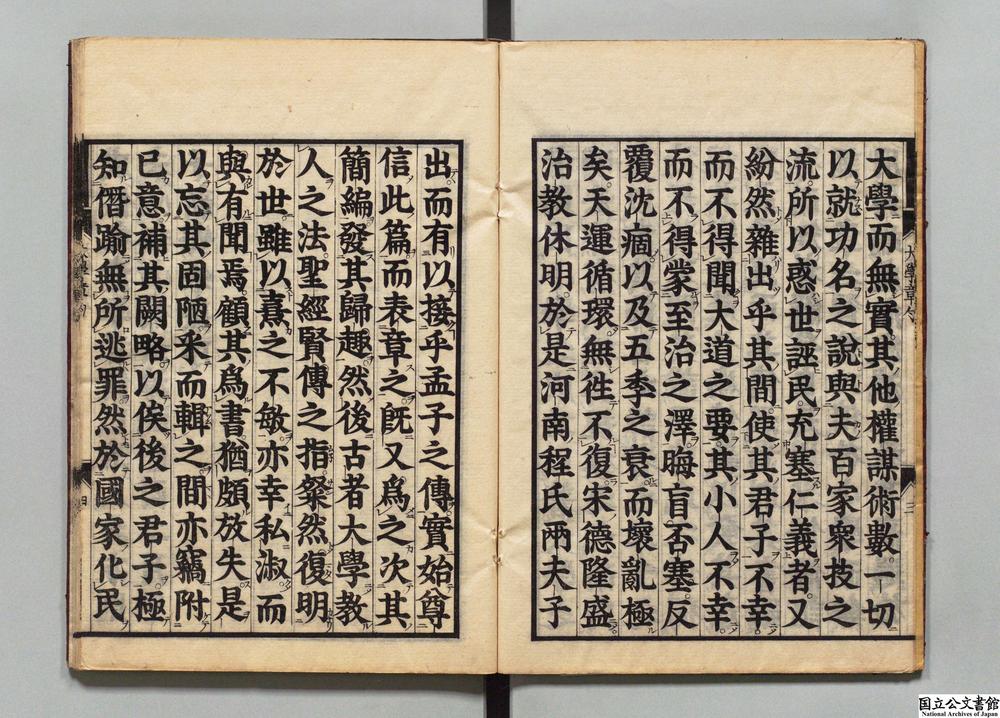 大學而無實其他權謀術數一切
以就功名之說與夫百家衆技之
流所以惑世誣民充塞仁義者又
紛然雜出乎其間使其君子不幸
而不得聞大道之要其小人不幸
而不得蒙至治之澤晦盲否塞反
覆沈痼以及五季之衰而壞亂極
矣天運循環無徃不復宋德隆盛
治教休明於是河南程氏兩夫子
出而有以接乎孟子之傳實始尊
信此篇而表章之旣又爲之次其
簡編發其歸趣然後古者大學教
人之法聖經賢傳之指粲然復明
於世雖以熹之不敏亦幸私淑而
與有聞焉顧其爲書猶頗放失是
以忘其固陋采而輯之間亦竊附
已意補其闕略以俟後之君子極
知僭踰無所逃罪然於國家化民
大學章句
三
四
国立公文書館
National Archives of Japan